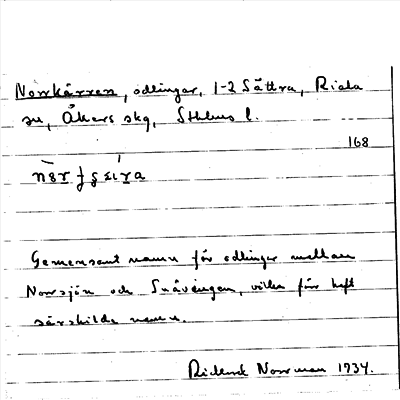 Norrkärren, odlingar, 1-2 Sättra, Riala
sn, Åkers skg, Sthlms l.
168
Gemensamt namn för odlingar mellan
Norrsjön och Snåvängen, vilka förr haft
särskilda namn.
Rickard Norrman 1934.